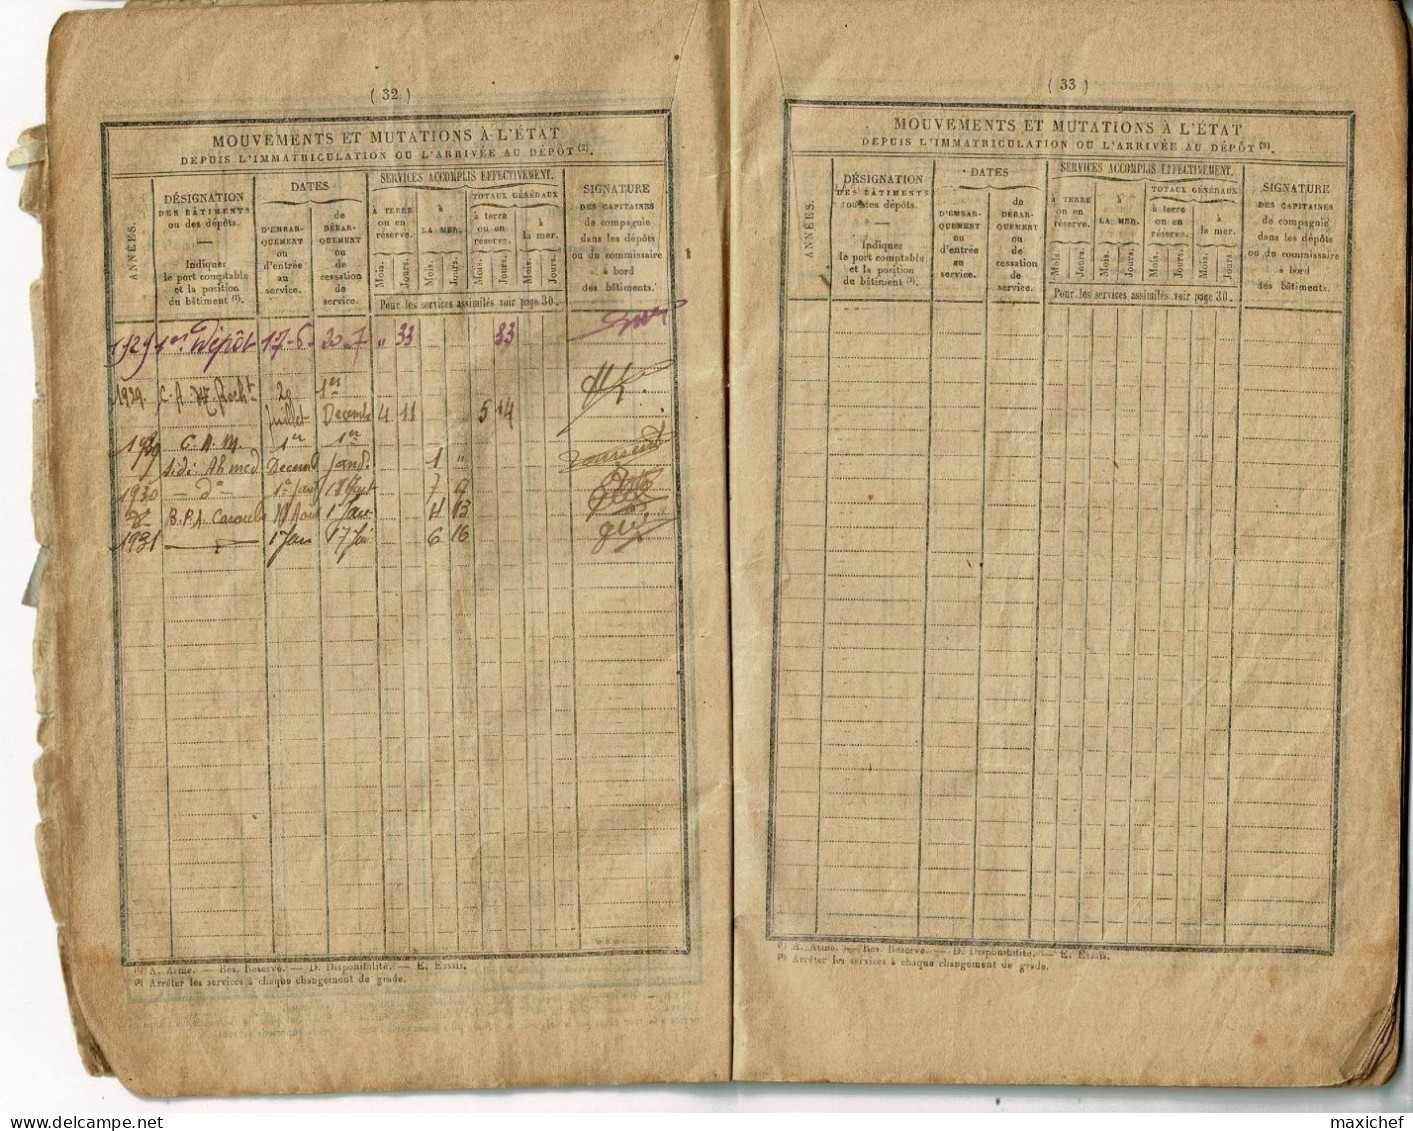 ( 32 )
MOUVEMENTS ET MUTATIONS À L'ÉTAT
DEPUIS L'IMMATRICULATION OU L'ARRIVÉE AU DÉPÔT (2).
ANNÉES.
DÉSIGNATION
DES BÂTIMENTS
ou des dépôts.
—
Indiquer
le port comptable
et la position
du bâtiment (1).
DATES
D'EMBAR-
QUEMENT
ou
d'entrée
au
service.
de
DÉBAR-
QUEMENT
ou
de
cessation
de
service.
SERVICES ACCOMPLIS EFFECTIVEMENT.
À TERRE
ou en
réserve.
à
LA MER.
TOTAUX GÉNÉRAUX
à terre
ou en
réserve.
à
la mer.
Mois. Jours. Mois. Jours. Mois. Jours. Mois. Jours.
Pour les services assimilés voir page 30.
SIGNATURE
DES CAPITAINES
de compagnie
dans les dépôts
ou du commissaire
à bord
des bâtiments.
1929 1er Dépôt 17-6- 20-7 " 33 33
1929. C. A. M. Rocht 20 1er
Juillet Décembre 4 11 5 14
1929 C. A. M. 1er 1er
Sidi Ahmed Décemb Janv. 1 "
1930 — do — 1er Janv 18 Août 7 9
do B.P.A. 18 Août 1 Janv 4 13
1931 1 Janv 17 6 16
(1) A. Armé. — Res. Réserve. — D. Disponibilité. — E. Essais.
(2) Arrêter les services à chaque changement de grade.
( 33 )
MOUVEMENTS ET MUTATIONS À L'ÉTAT
DEPUIS L'IMMATRICULATION OU L'ARRIVÉE AU DÉPÔT (2).
ANNÉES.
DÉSIGNATION
DES BÂTIMENTS
ou des dépôts.
—
Indiquer
le port comptable
et la position
du bâtiment (1).
DATES
D'EMBAR-
QUEMENT
ou
d'entrée
au
service.
de
DÉBAR-
QUEMENT
ou
de
cessation
de
service.
SERVICES ACCOMPLIS EFFECTIVEMENT.
À TERRE
ou en
réserve.
à
LA MER.
TOTAUX GÉNÉRAUX
à terre
ou en
réserve.
à
la mer.
Mois. Jours. Mois. Jours. Mois. Jours. Mois. Jours.
Pour les services assimilés voir page 30.
SIGNATURE
DES CAPITAINES
de compagnie
dans les dépôts
ou du commissaire
à bord
des bâtiments.
(1) A. Armé. — Res. Réserve. — D. Disponibilité. — E. Essais.
(2) Arrêter les services à chaque changement de grade.
maxichef